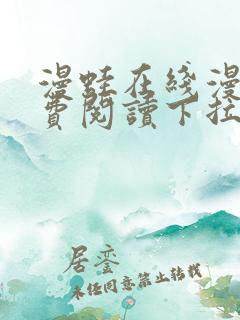 漫蛙在线漫
费阅读下拉
居鎏
未经同意禁止转载